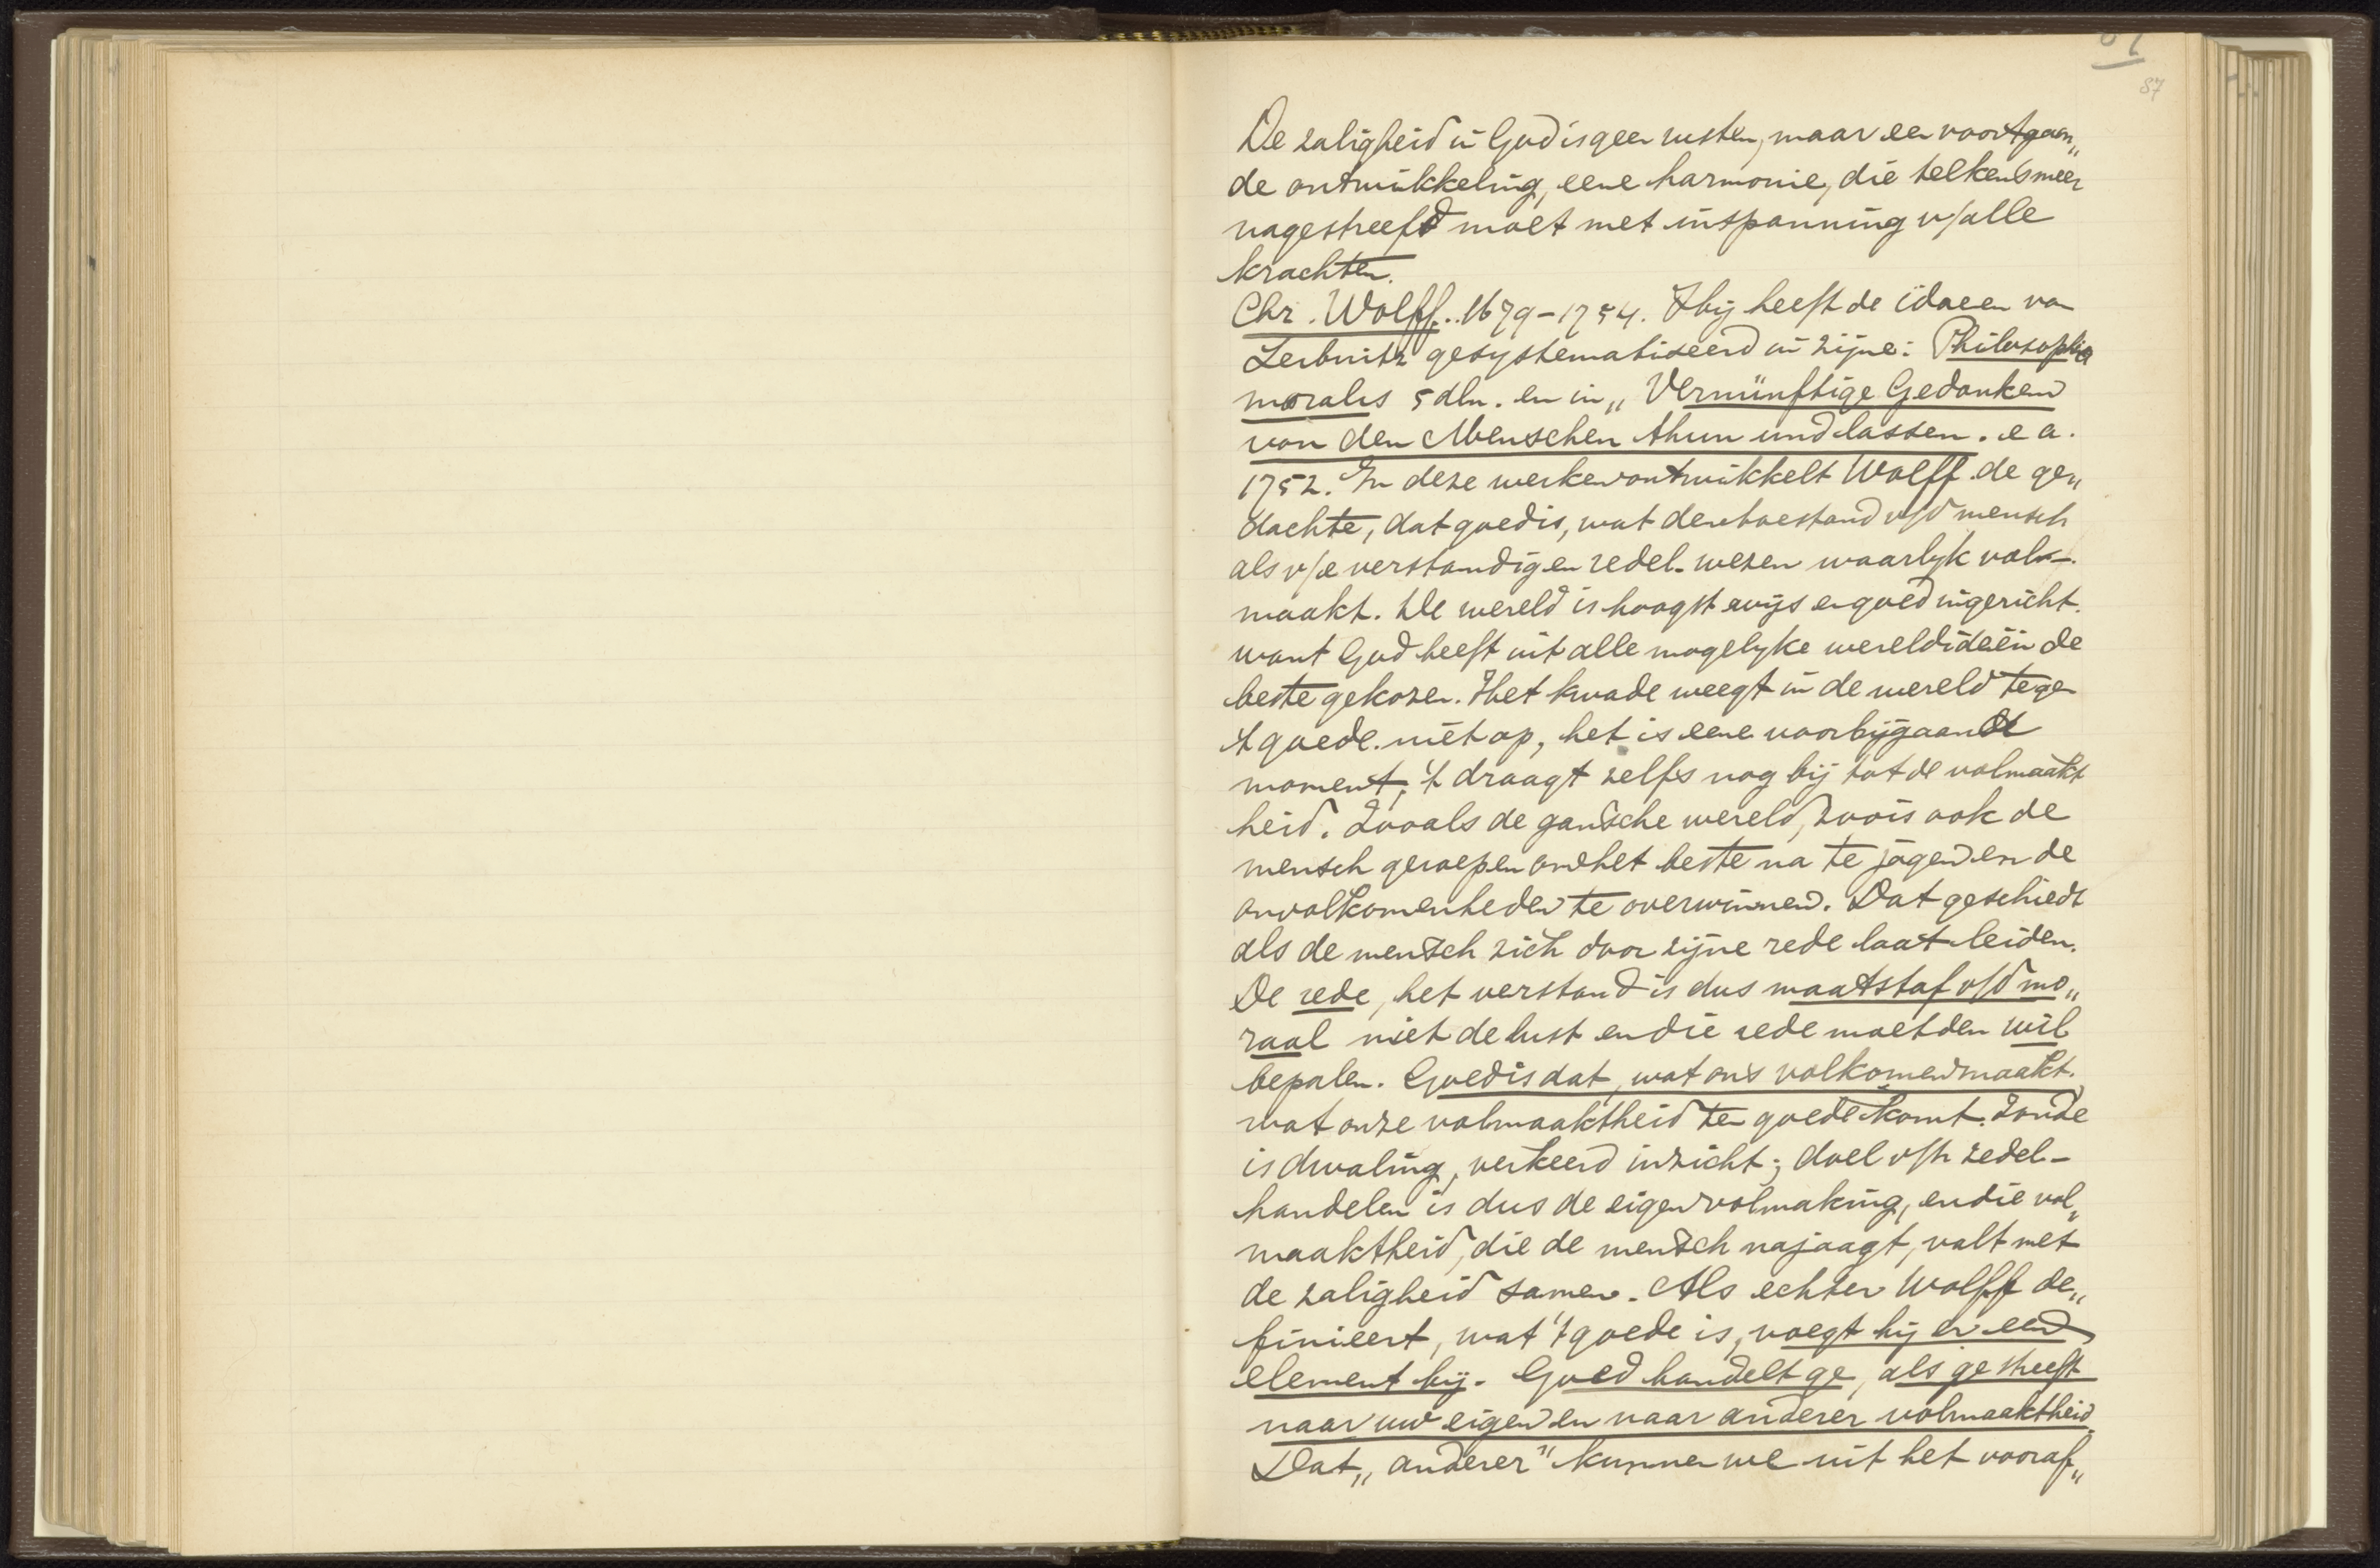 87
De zaligheid in God is geen rusten, maar een voortgaan„
de ontwikkeling, eene harmonie, die telkens meer
nagestreefd moet met inspanning v/alle
krachten.
Chr. Wolff. 1679-1754. Hij heeft de idaeen van
Leibnitz gesystematiseerd in zijne: Philosophia
moralis 5 dln. en in „Vernünftige Gedanken
von den Menschen thun und lassen. e a.
1752. In deze werken ontwikkelt Wolff de ge„
dachte, dat goed is, wat den toestand v/d mensch
als v/e verstandig en redel. wezen waarlyk vol-
maakt. De wereld is hoogst wijs en goed ingericht.
want God heeft uit alle mogelyke wereldideën de
beste gekozen. Het kwade weegt in de wereld tegen
't goede niet op, het is eene voorbijgaande
moment, 't draagt zelfs nog bij tot de volmaakt
heid. Zooals de gansche wereld, zoo is ook de
mensch geroepen om het beste na te jagen en de
onvolkomenheden te overwinnen. Dat geschiedt
als de mensch zich door zijne rede laat leiden.
De rede, het verstand is dus maatstaf v/d mo„
raal niet de lust en die rede moet den wil
bepalen. Goed is dat, wat ons volkomen maakt.
wat onze volmaaktheid ten goede komt. Zonde
is dwaling, verkeerd inzicht; doel v/h zedel-
handelen is dus de eigen volmaking, en die vol„
maaktheid, die de mensch najaagt, valt met
de zaligheid samen. Als echter Wolff de„
finieert, wat 't goede is, voegt hij er een
element bij. Goed handelt ge, als ge streeft
naar uw eigen en naar anderer volmaaktheid.
Dat „anderer" kunnen we uit het vooraf„